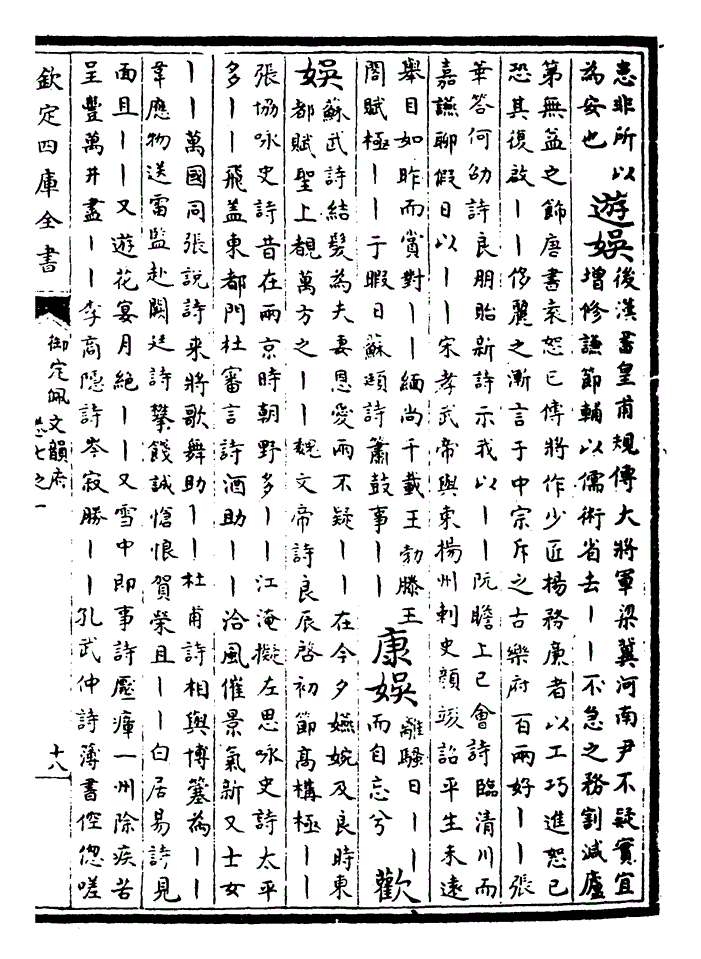 恚非所以
為安也
遊娱
後漢書皇甫規傳大將軍梁冀河南尹不疑實宜
增修謙節輔以儒術省去丨丨不急之務割減廬
第無益之飾唐書袁恕已傳將作少匠楊務亷者以工巧進恕已
恐其復啟丨丨侈麗之漸言于中宗斥之古樂府百兩好丨丨張
華答何劭詩良朋貽新詩示我以丨丨阮瞻上已會詩臨清川而
嘉讌聊假日以丨丨宋孝武帝與東揚州刺史顔竣詔平生未遠
舉目如昨而賞對丨丨緬尚千載王勃滕王
閣賦極丨丨于暇日蘇頲詩簫鼓事丨丨
康娱
離騷日丨丨
而自忘兮
歡
娱
蘇武詩結髮為夫妻恩愛兩不疑丨丨在今夕嬿婉及良時東
都賦聖上覩萬方之丨丨魏文帝詩良辰啓初節髙構極丨丨
張協咏史詩昔在兩京時朝野多丨丨江淹擬左思咏史詩太平
多丨丨飛盖東都門杜審言詩酒助丨丨洽風催景氣新又士女
丨丨萬國同張説詩来將歌舞助丨丨杜甫詩相與博簺為丨丨
韋應物送雷監赴闕廷詩攀餞誠愴恨賀榮且丨丨白居易詩見
面且丨丨又遊花宴月絶丨丨又雪中即事詩壓瘴一州除疾苦
呈豐萬井盡丨丨李商隠詩岑寂勝丨丨孔武仲詩薄書倥偬嗟
欽定四庫全書
御定佩文韻府
卷七之一
十八